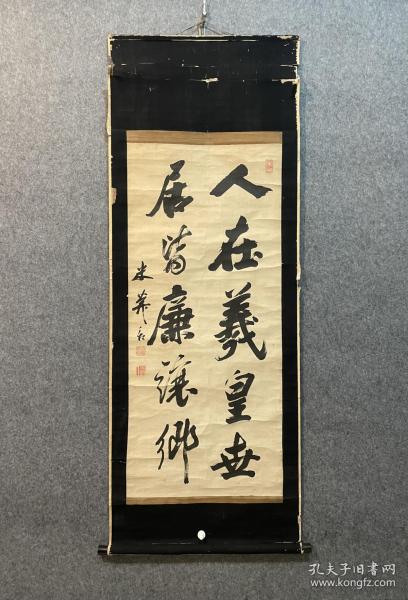 人在羲皇世
居皆廉讓鄉
米葊
孔夫子旧书网
www.kongfz.com